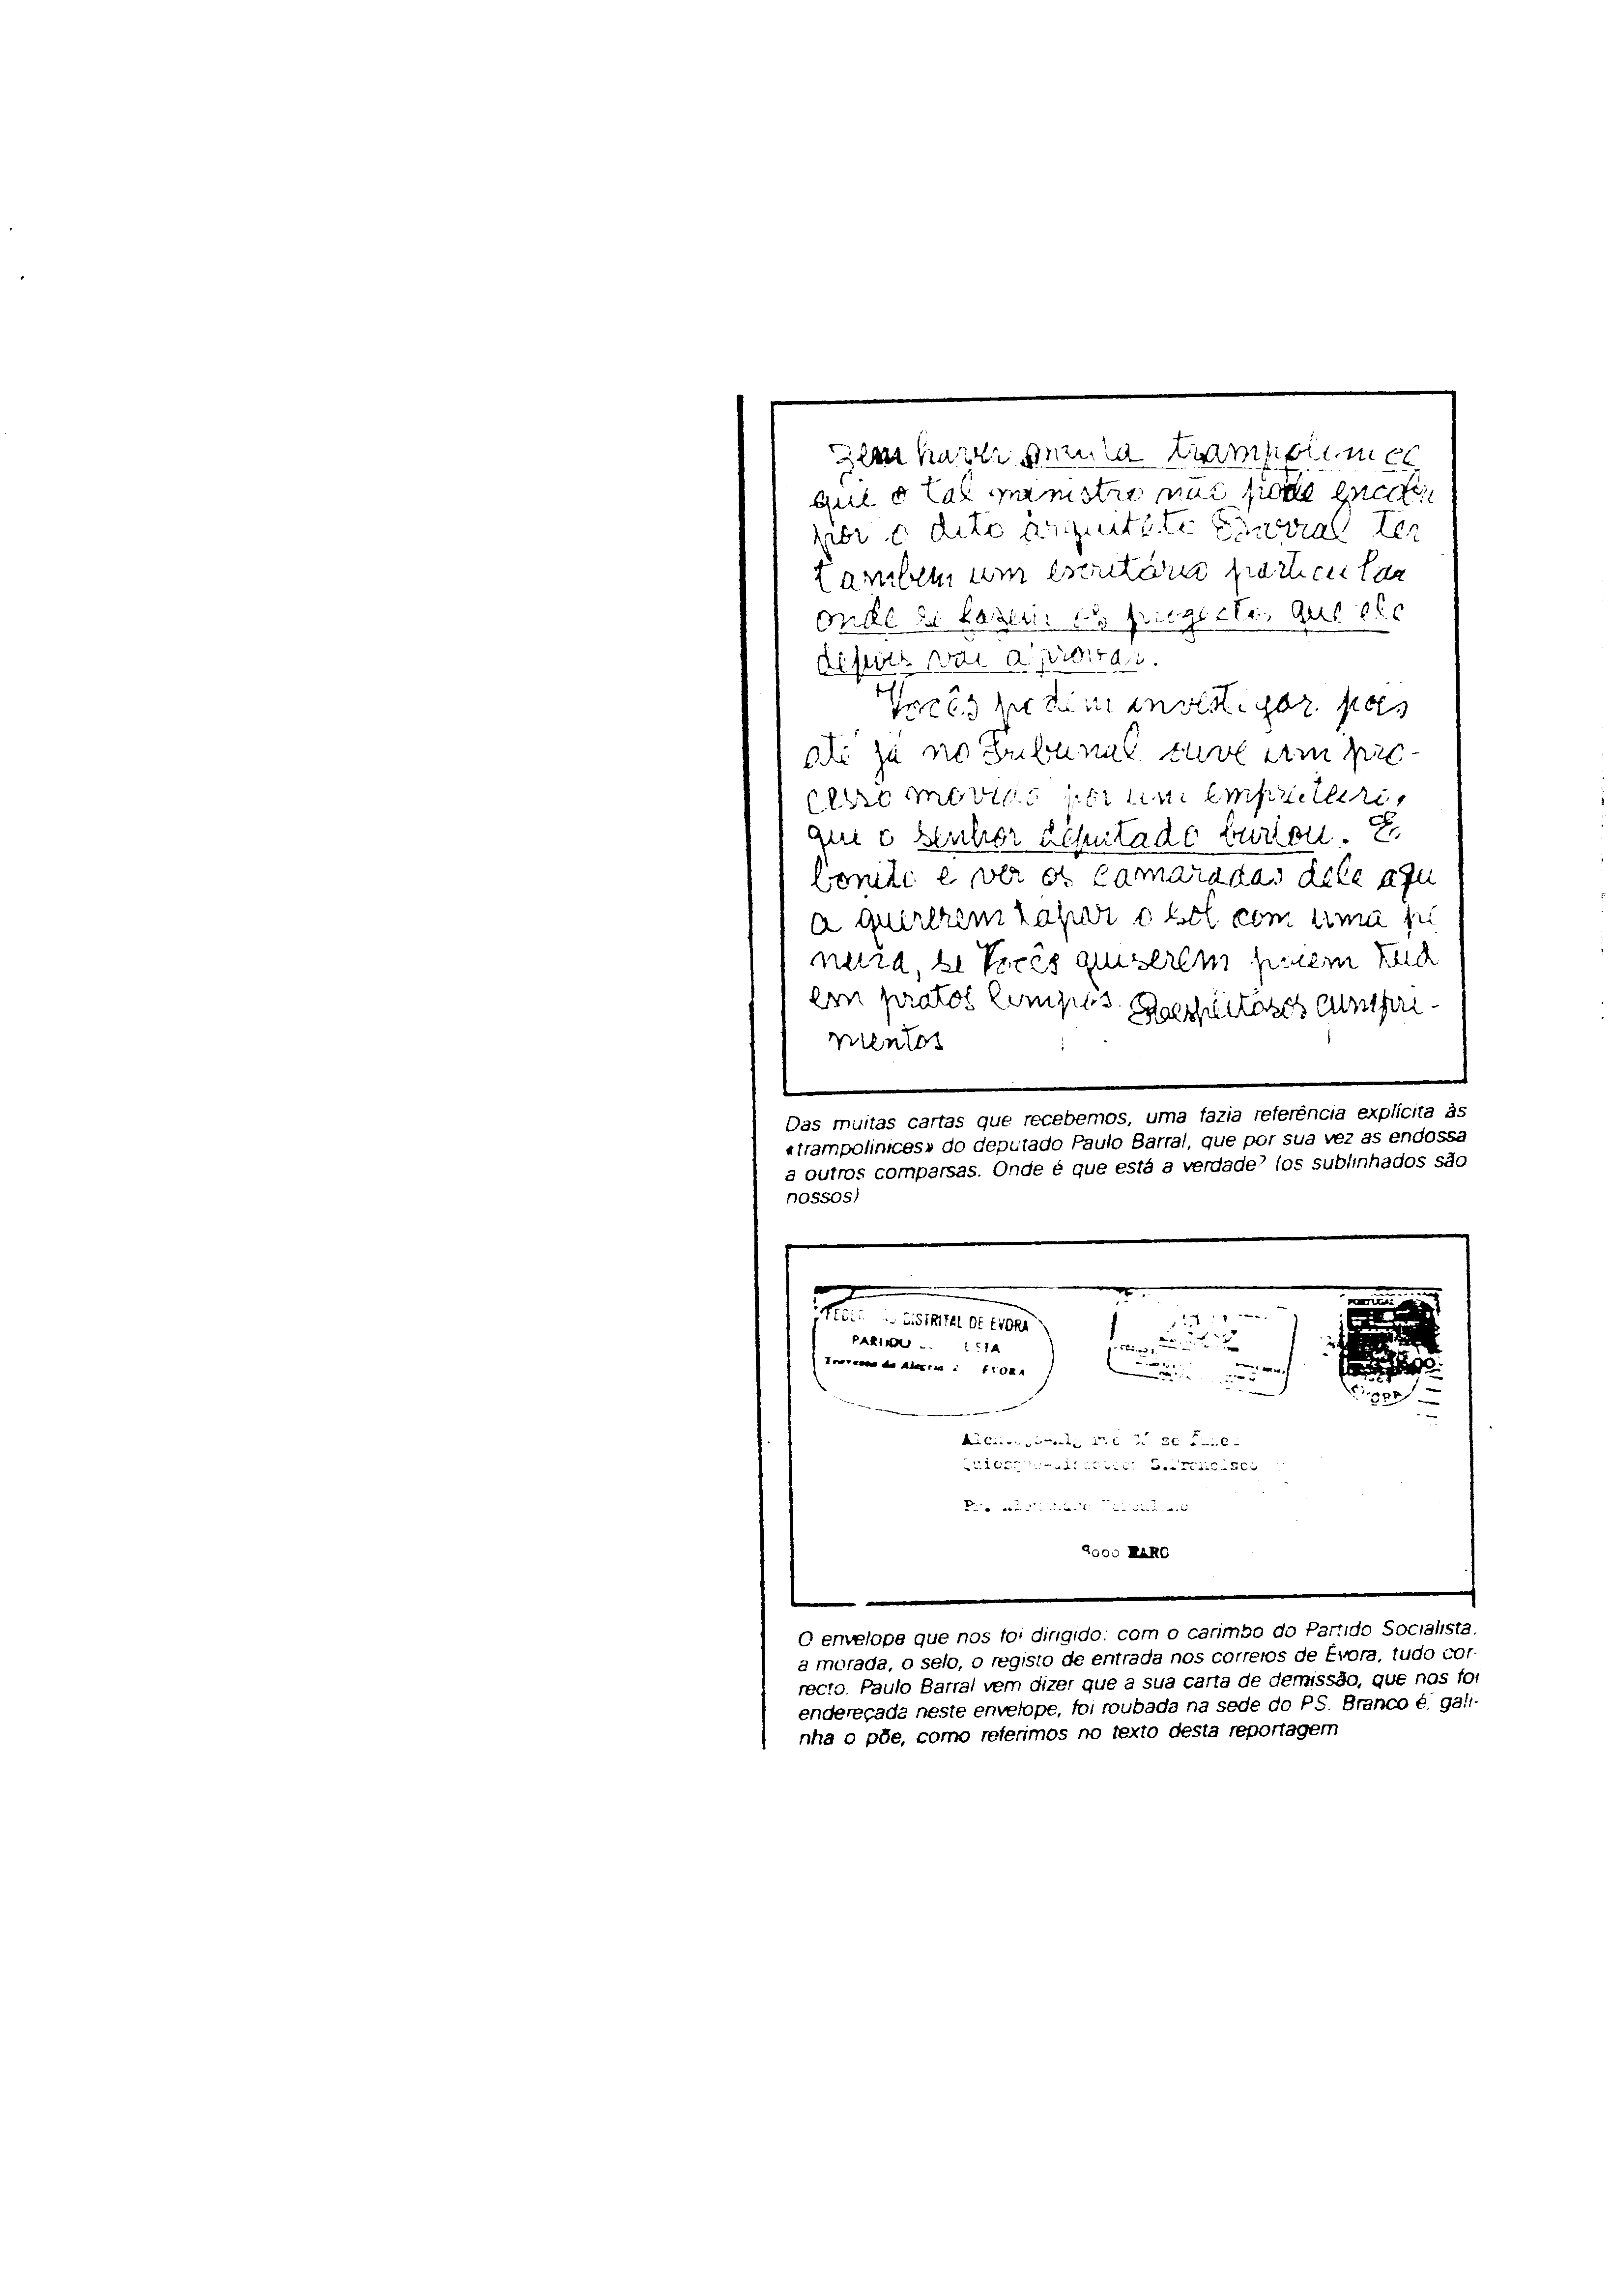 Tem havido muita trampolinice
que o tal ministro não pode encobrir
por o dito arquiteto Barral ter
tambem um escritório particular
onde se fazem os progectos que ele
depois vai aprovar.
Vocês podem investigar pois
até já no Tribunal teve um pro-
cesso movido por um empreiteiro,
que o senhor deputado burlou. E
bonito é ver os camaradas dele aqu
a quererem tapar o sol com uma pe
neira, se Vocês quiserem põem tud
em pratos limpos. Respeitosos cumpri-
mentos
Das muitas cartas que recebemos, uma fazia referência explícita às
«trampolinices» do deputado Paulo Barral, que por sua vez as endossa
a outros comparsas. Onde é que está a verdade? (os sublinhados são
nossos)
DISTRITAL DE EVORA
PARTIDO
Travessa da Alegria EVORA
PORTUGAL
S.Francisco
8000 FARO
O envelope que nos foi dirigido: com o carimbo do Partido Socialista,
a morada, o selo, o registo de entrada nos correios de Évora, tudo cor-
recto. Paulo Barral vem dizer que a sua carta de demissão, que nos foi
endereçada neste envelope, foi roubada na sede do PS. Branco é, gali-
nha o põe, como referimos no texto desta reportagem